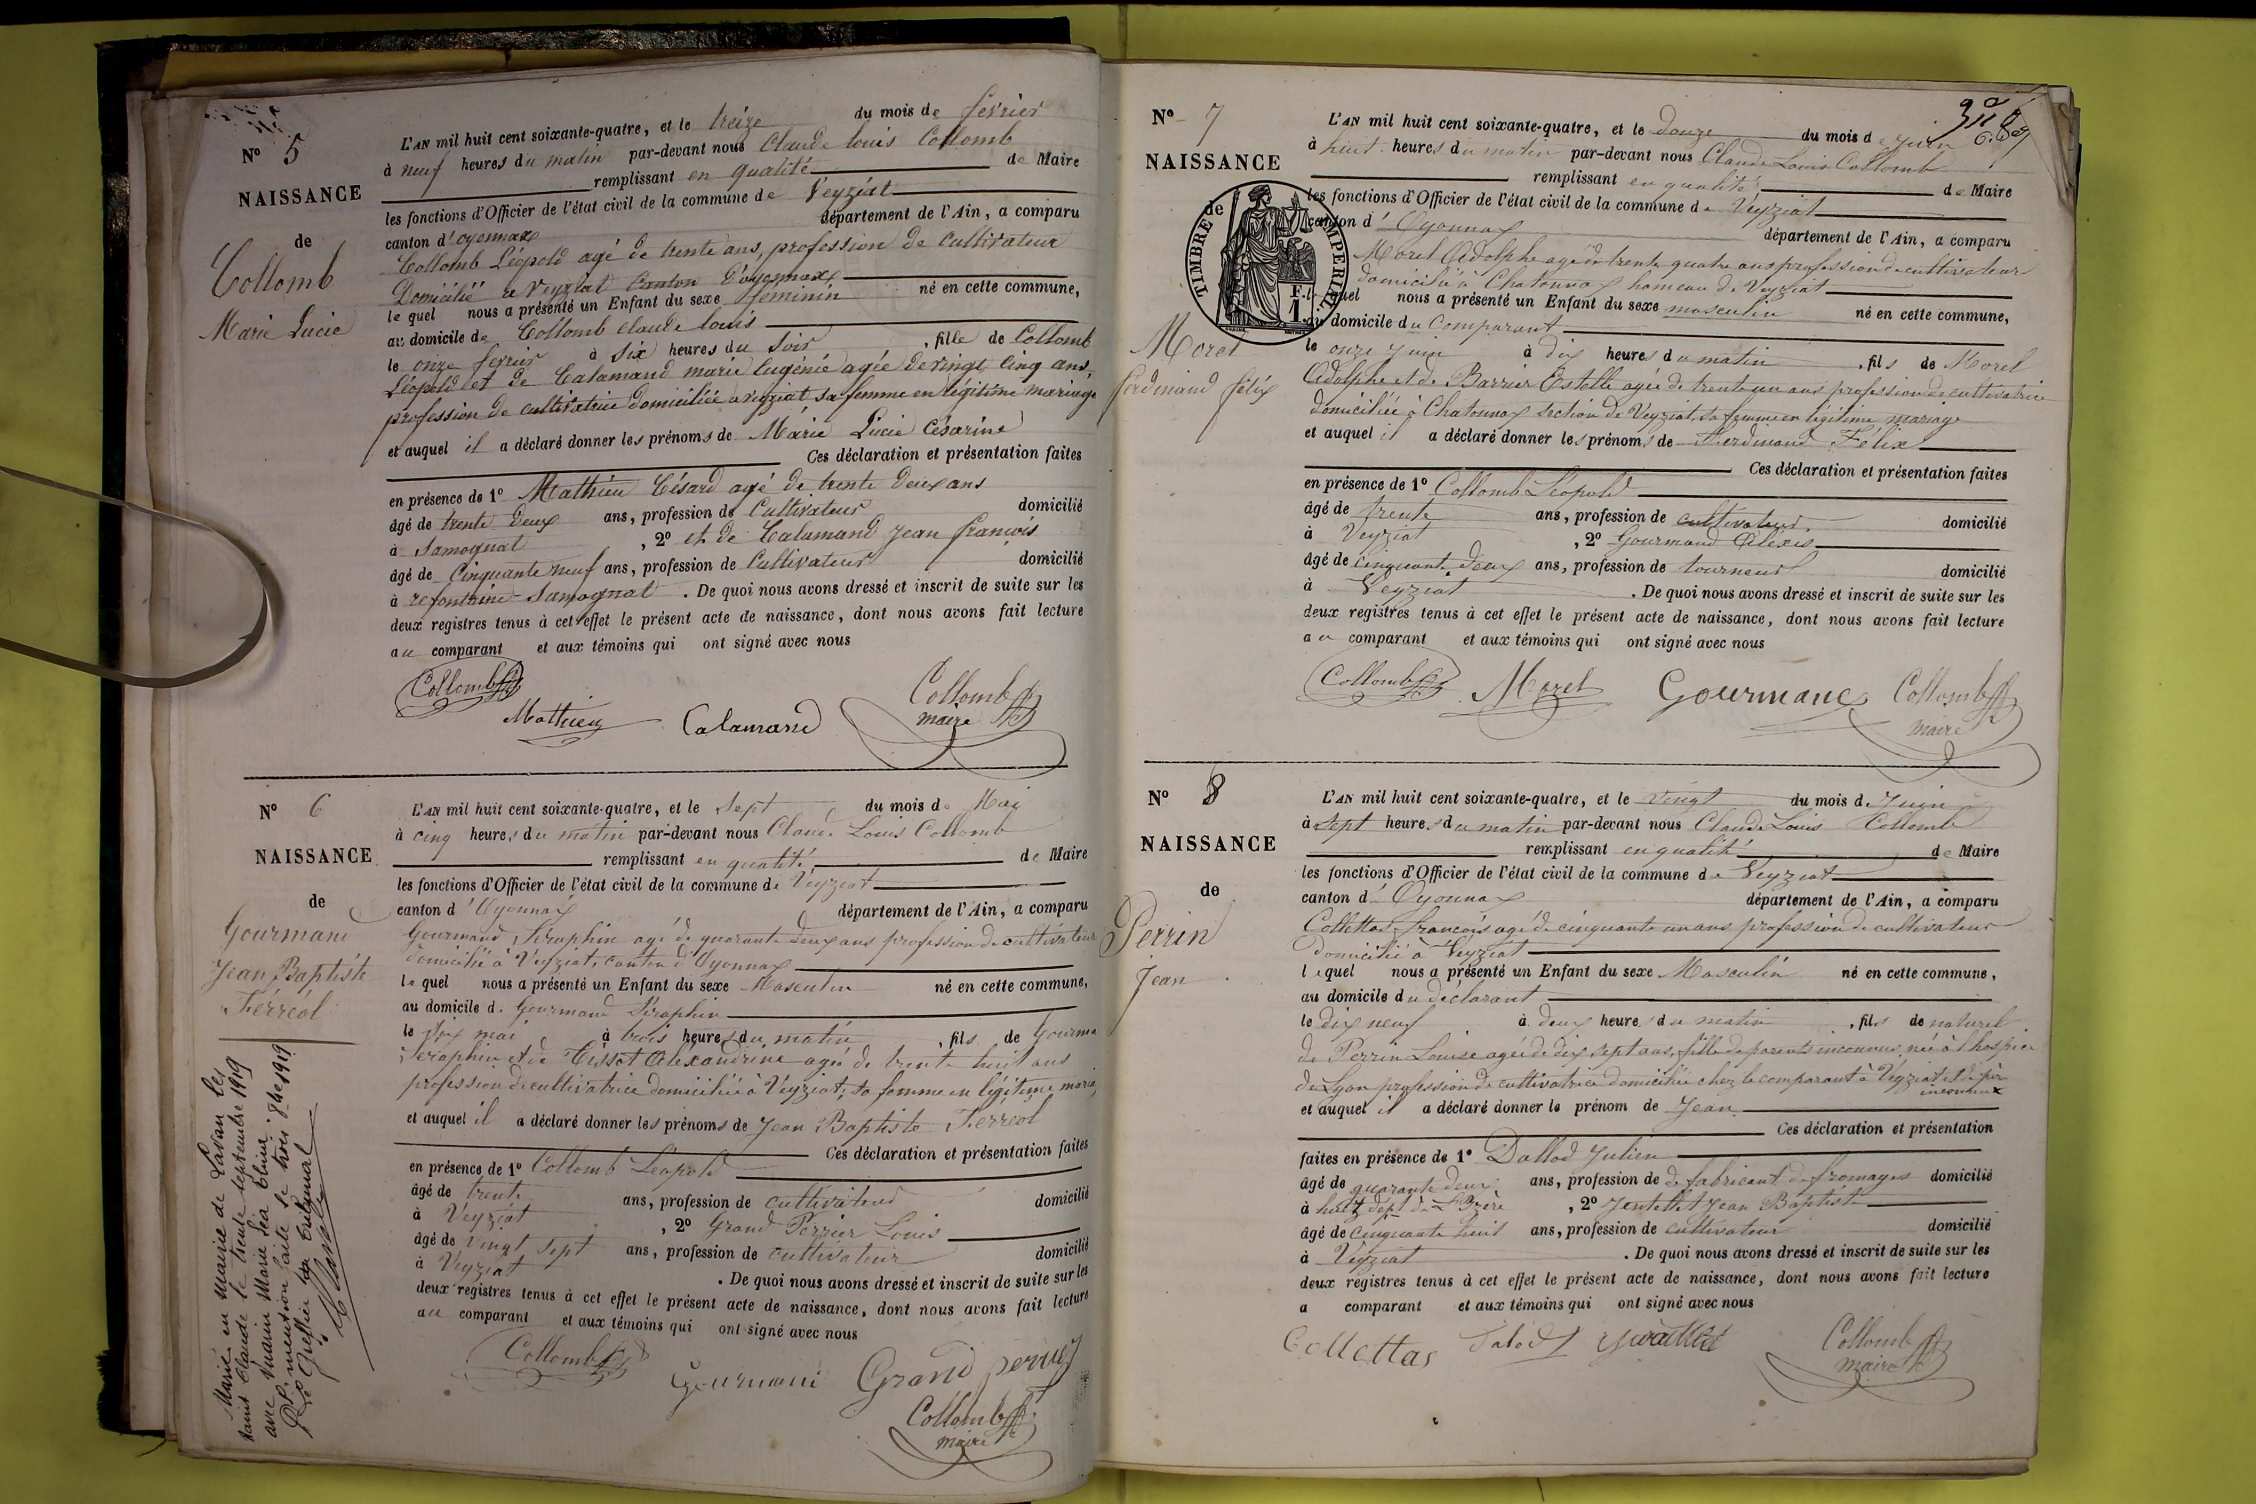 N° 5
NAISSANCE
de
Collomb
Marie Lucie
L'AN mil huit cent soixante-quatre, et le treize du mois de février
à neuf heures du matin par-devant nous Claude Louis Collomb
remplissant en qualité de Maire
les fonctions d'Officier de l'état civil de la commune de Veyziat
canton d'oyonnax département de l'Ain, a comparu
Collomb Léopold agé de trente ans, profession de cultivateur
Domicilié a Veyziat Canton D'oyonnax
le quel nous a présenté un Enfant du sexe féminin né en cette commune,
au domicile de Collomb claude louis
le onze fevrier à six heures du soir, fille de Collomb
Léopold et de Calamand marie Eugénie agée de vingt cinq ans,
profession de cultivatrice domiciliée a veyziat sa femme en légitime mariage
et auquel il a déclaré donner les prénoms de Marie Lucie Césarine
Ces déclaration et présentation faites
en présence de 1° Mathieu Césard agé de trente deux ans
âgé de trente deux ans, profession de Cultivateur domicilié
à Samognat, 2° et de Calamand Jean françois
âgé de Cinquante neuf ans, profession de Cultivateur domicilié
à Samognat. De quoi nous avons dressé et inscrit de suite sur les
deux registres tenus à cet effet le présent acte de naissance, dont nous avons fait lecture
au comparant et aux témoins qui ont signé avec nous
Collomb
Mathieu Calamand Collomb
maire
N° 6
NAISSANCE
de
Gourmand
Jean Baptiste
Ferréol
L'AN mil huit cent soixante-quatre, et le sept du mois de Mai
à cinq heures du matin par-devant nous Claude Louis Collomb
remplissant en qualité de Maire
les fonctions d'Officier de l'état civil de la commune de Veyziat
canton d'Oyonnax département de l'Ain, a comparu
Gourmand Séraphin agé de quarante deux ans profession de cultivateur
domicilié à Veyziat, canton d'Oyonnax
le quel nous a présenté un Enfant du sexe Masculin né en cette commune,
au domicile de Gourmand Séraphin
le six mai à trois heures du matin, fils de Gourma
Séraphin et de Tissot Alexandrine agée de trente huit ans
profession de cultivatrice domiciliée à Veyziat, sa femme en légitime maria
et auquel il a déclaré donner les prénoms de Jean Baptiste Ferréol
Ces déclaration et présentation faites
en présence de 1° Collomb Léopold
âgé de trente ans, profession de cultivateur domicilié
à Veyziat, 2° Grand Perrier Louis
âgé de vingt sept ans, profession de cultivateur domicilié
à Veyziat. De quoi nous avons dressé et inscrit de suite sur les
deux registres tenus à cet effet le présent acte de naissance, dont nous avons fait lecture
au comparant et aux témoins qui ont signé avec nous
Collomb
Gourmand Grand perrier
Collomb
maire
Marié en mairie de Lavan les
saint Claude le trente septembre 1919
avec Marie
mention faite le trois 8bre 1919
Le Greffier du tribunal
N° 7
NAISSANCE
de
Morel
Ferdinand félix
TIMBRE IMPERIAL
1 F.
L'AN mil huit cent soixante-quatre, et le douze du mois de Juin
à huit heures du matin par-devant nous Claude Louis Collomb
remplissant en qualité de Maire
les fonctions d'Officier de l'état civil de la commune de Veyziat
canton d'Oyonnax département de l'Ain, a comparu
Morel Adolphe agé de trente quatre ans profession de cultivateur
domicilié à Chatonnax hameau de Veyziat
lequel nous a présenté un Enfant du sexe masculin né en cette commune,
au domicile du Comparant
le onze juin à dix heures du matin, fils de Morel
Adolphe et de Barrier Estelle agée de trente un ans profession de cultivatrice
domiciliée à Chatonnax section de Veyziat, sa femme en légitime mariage
et auquel il a déclaré donner les prénoms de Ferdinand Félix
Ces déclaration et présentation faites
en présence de 1° Collomb Léopold
âgé de trente ans, profession de cultivateur domicilié
à Veyziat, 2° Gourmand Alexis
âgé de cinquante deux ans, profession de tourneur domicilié
à Veyziat. De quoi nous avons dressé et inscrit de suite sur les
deux registres tenus à cet effet le présent acte de naissance, dont nous avons fait lecture
au comparant et aux témoins qui ont signé avec nous
Collomb Morel Gourmand Collomb
maire
N° 8
NAISSANCE
de
Perrin
Jean
L'AN mil huit cent soixante-quatre, et le vingt du mois de Juin
à sept heures du matin par-devant nous Claude Louis Collomb
remplissant en qualité de Maire
les fonctions d'Officier de l'état civil de la commune de Veyziat
canton d'Oyonnax département de l'Ain, a comparu
Collettas françois agé de cinquante un ans profession de cultivateur
domicilié à Veyziat
lequel nous a présenté un Enfant du sexe Masculin né en cette commune,
au domicile du déclarant
le dix neuf à deux heures du matin, fils de naturel
de Perrin Louise agée de dix sept ans, fille de parents inconnus, née à l'hospice
de Lyon profession de cultivatrice domiciliée chez le comparant à Veyziat et de père
inconnu
et auquel il a déclaré donner le prénom de Jean
Ces déclaration et présentation
faites en présence de 1° Dallod Julien
âgé de quarante deux ans, profession de de fabricant de fromages domicilié
à dépt de, 2° Jean Baptiste
âgé de cinquante huit ans, profession de cultivateur domicilié
à Veyziat. De quoi nous avons dressé et inscrit de suite sur les
deux registres tenus à cet effet le présent acte de naissance, dont nous avons fait lecture
a comparant et aux témoins qui ont signé avec nous
Collettas Dalod Collomb
maire